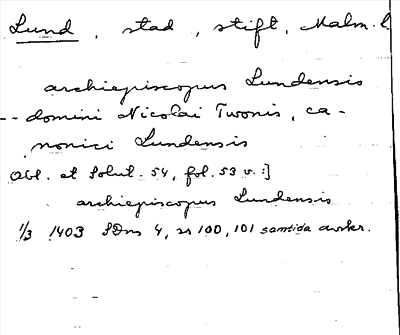 Lund, stad, stift, Malm. l.
archiepiscopus Lundensis
-- domini Nicolai Twonis, ca-
nonici Lundensis
Obl. et Solut. 54, fol. 53 v. :]
archiepiscopus Lundensis
1/3 1403 SDns 4, nr 100, 101 samtida avskr.